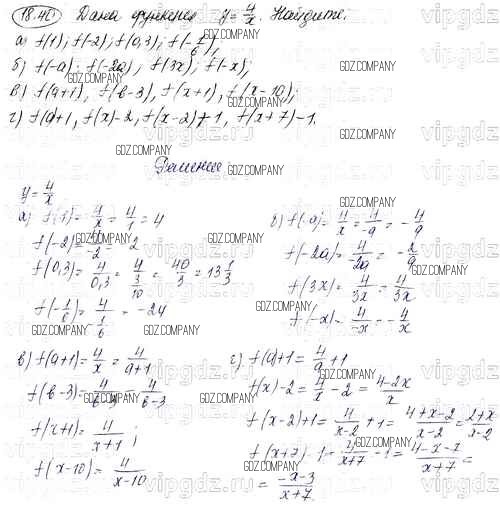 18.40 Дана функция y = 4/x. Найдите:
а) f(1); f(-2); f(0,3); f(-1/6);
б) f(-a); f(-2a); f(3x); f(-x);
в) f(a+1), f(b-3), f(x+1), f(x-10);
г) f(a)+1, f(x)-2, f(x-2)+1, f(x+7)-1.
Решение:
y = 4/x
а) f(1) = 4/x = 4/1 = 4
f(-2) = 4/-2 = -2
f(0,3) = 4/0,3 = 4/(3/10) = 40/3 = 13 1/3
f(-1/6) = 4/(-1/6) = -24
б) f(-a) = 4/x = 4/-a = -4/a
f(-2a) = 4/-2a = -2/a
f(3x) = 4/3x = 4/3x
f(-x) = 4/-x = -4/x
в) f(a+1) = 4/x = 4/a+1
f(b-3) = 4/b-3 = 4/b-3
f(x+1) = 4/x+1;
f(x-10) = 4/x-10
г) f(a)+1 = 4/a +1
f(x)-2 = 4/x - 2 = 4-2x/x
f(x-2)+1 = 4/x-2 +1 = 4+x-2/x-2 = 2+x/x-2
f(x+7)-1 = 4/x+7 -1 = 4-x-7/x+7 =
= -x-3/x+7
GDZ.COMPANY
vipgdz